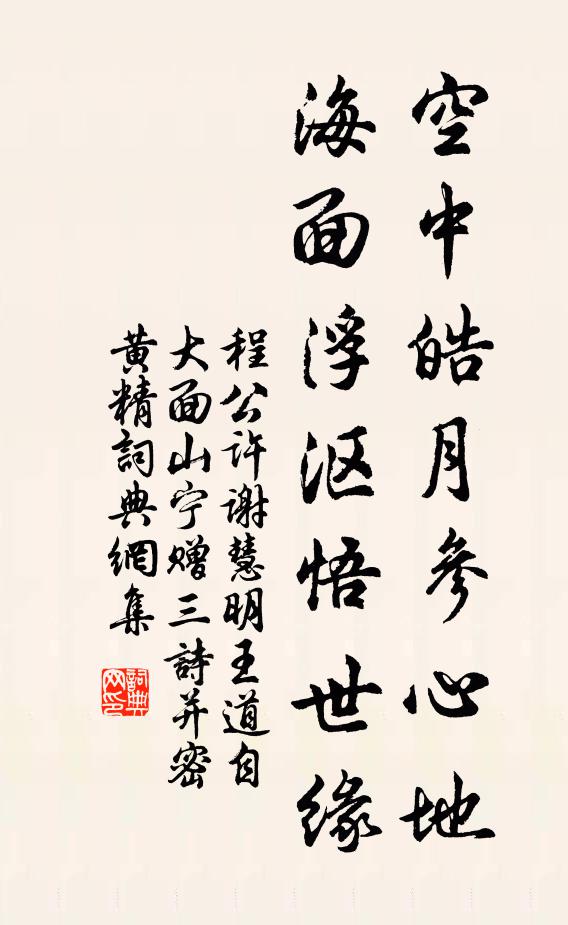 空中皓月參心地
海面浮沤悟世緣
程公许谢慧明王道自
大面山宁赠三詩并密
黃精詞典網集
詞典网印